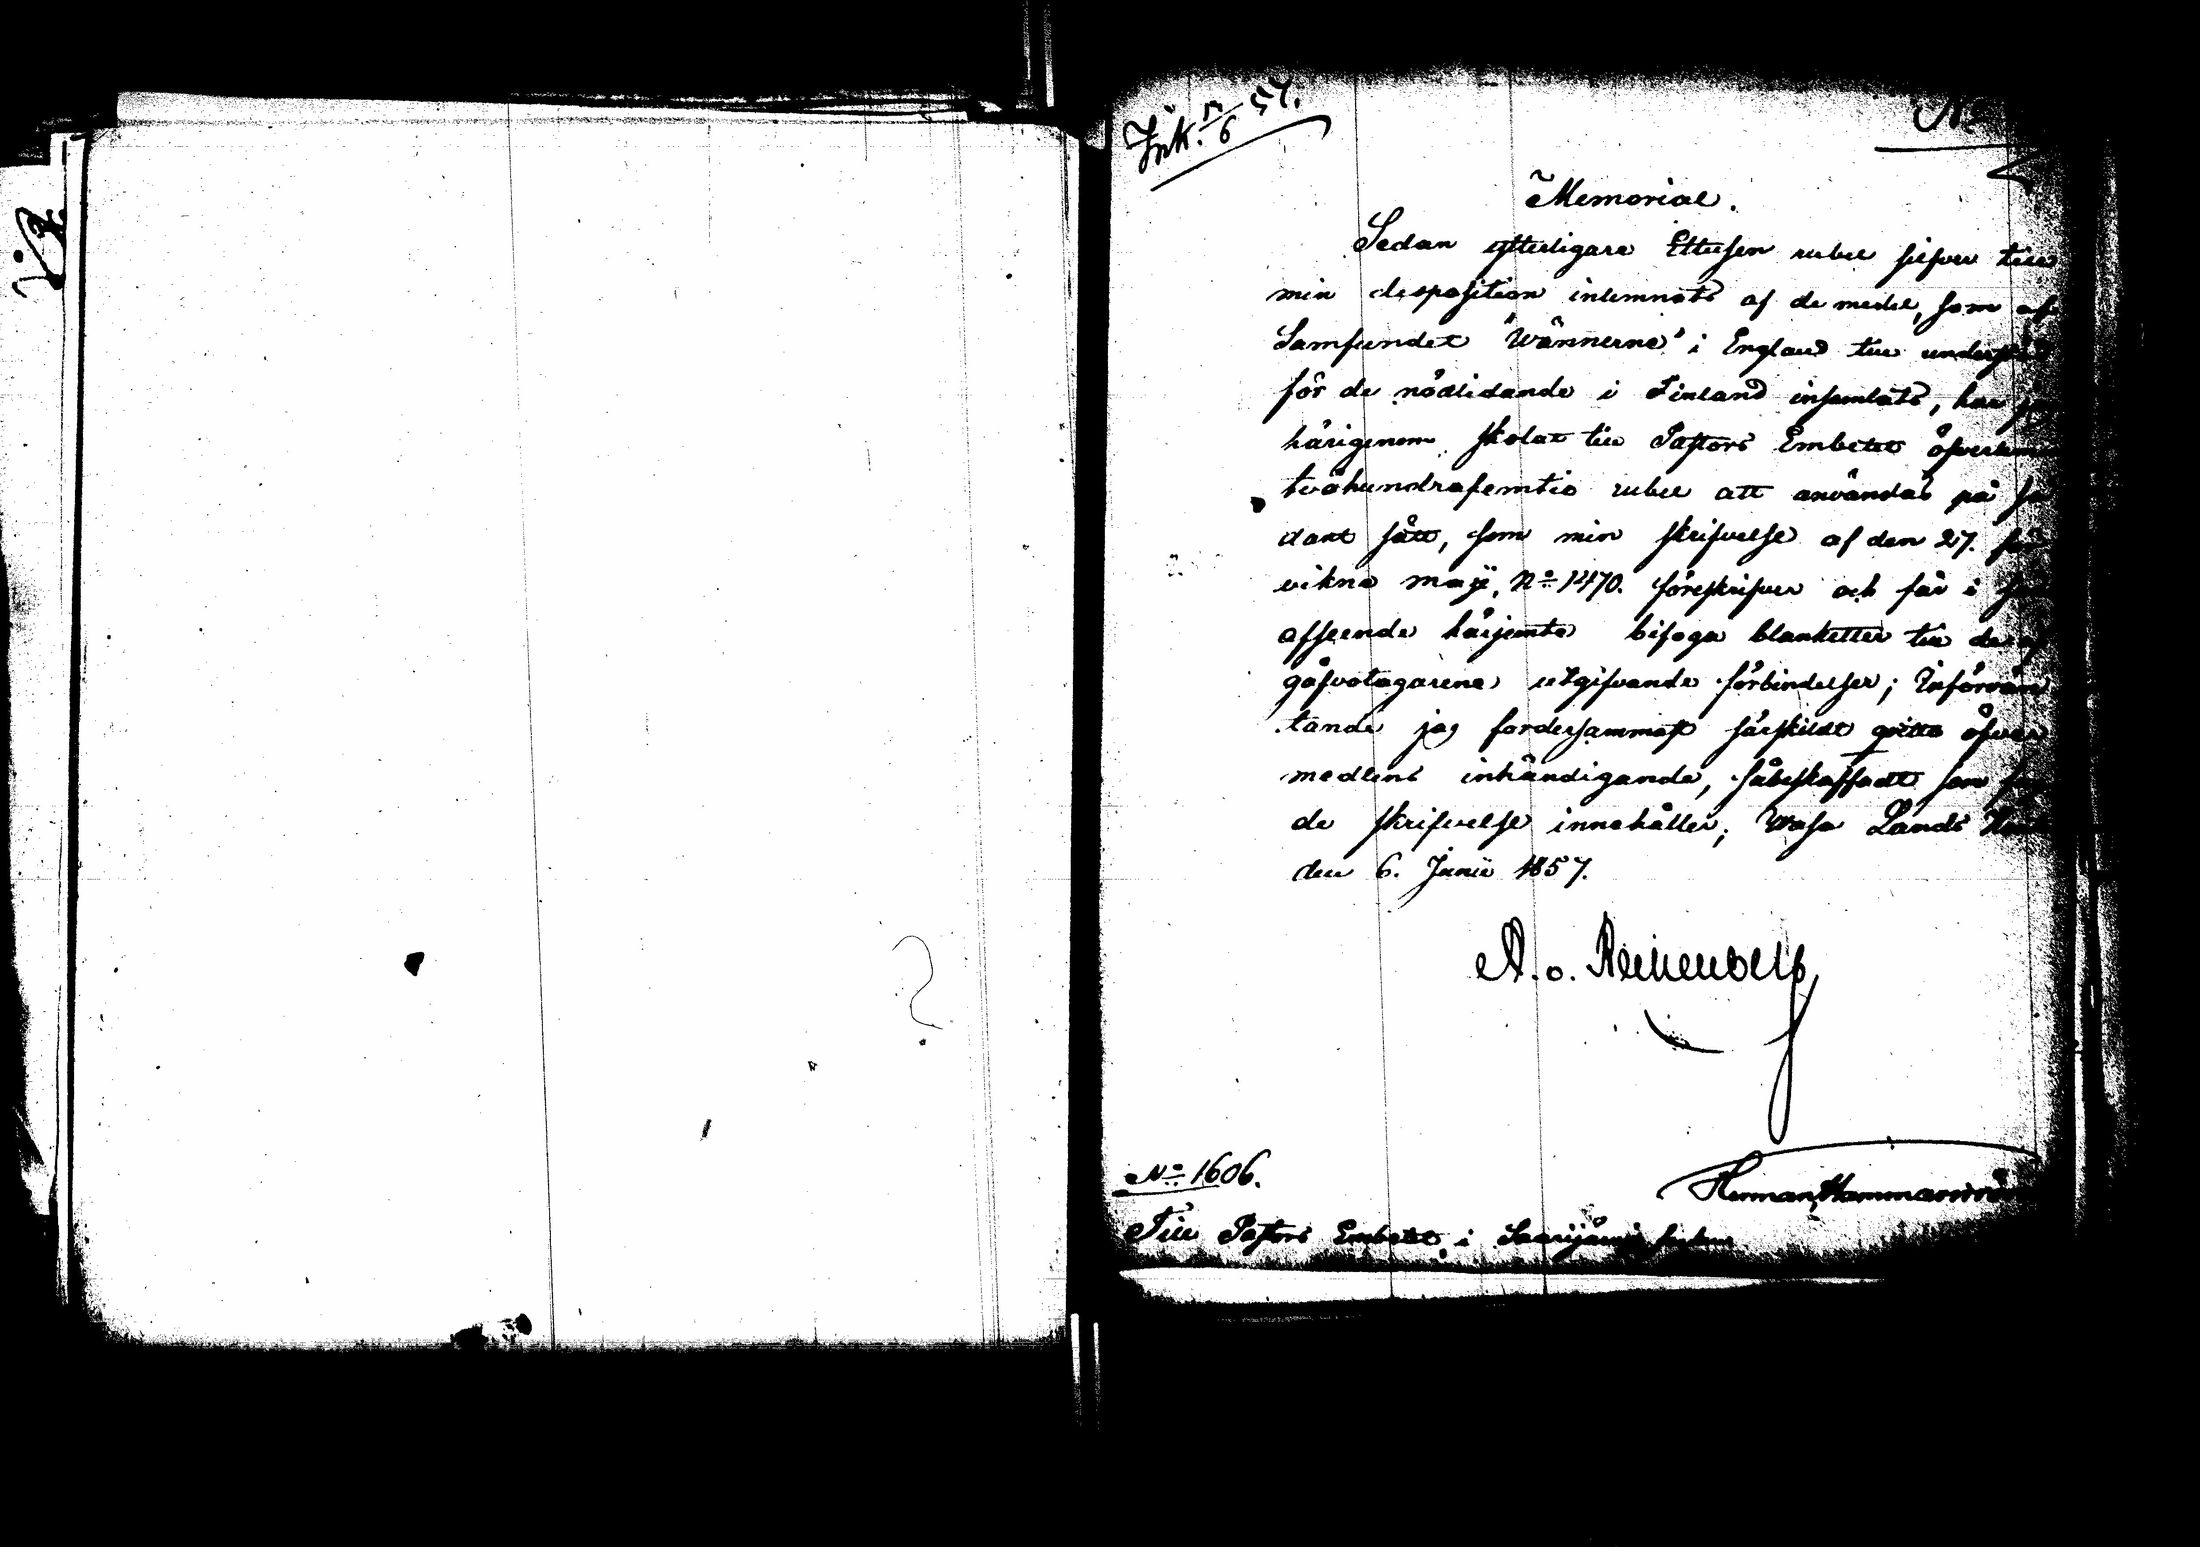 Ink. 17/6 57.
No
Memorial.
Sedan ytterligare Ettusen rubel silfver till
min disposition inlemnats af de medel, som af
Samfundet "Wännerne" i England till understöd
för de nödlidande i Finland insamlats, har jag
härigenom skolat till Pastors Embetet öfverlemna
tvåhundrafemtio rubel att användas på så
dant sätt, som min skrifvelse af den 27. för
vikne maji, No 1470. föreskrifver och får i
afseende härjemte bifoga blanketter till de af
gåfvotagarene utgifvande förbindelser; Införvän
tande jag fordersammast särskildt qvitto öfver
medlens inhändigande, såbeskaffadt som
de skrifvelse innehåller; Wasa Lands
den 6. Junii 1857.
No 1606.
Herman Hammarström
Till Pastors Embetet i Saarijärvi socken